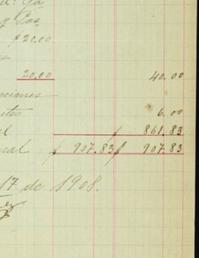 y Gas
$20.00
20.00 40.00
ciones
6.00
$ 861.83
$ 907.83 $ 907.83
17 de 1908.